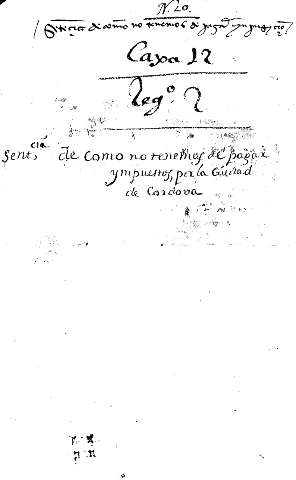 N 20.
Sentençia de como no tenemos de pagar ympusiçion
Caxa 12
Lego. 2
Sentcia, de como no tenemos de pagar
ympuestos, por la Ciudad
de Cordova